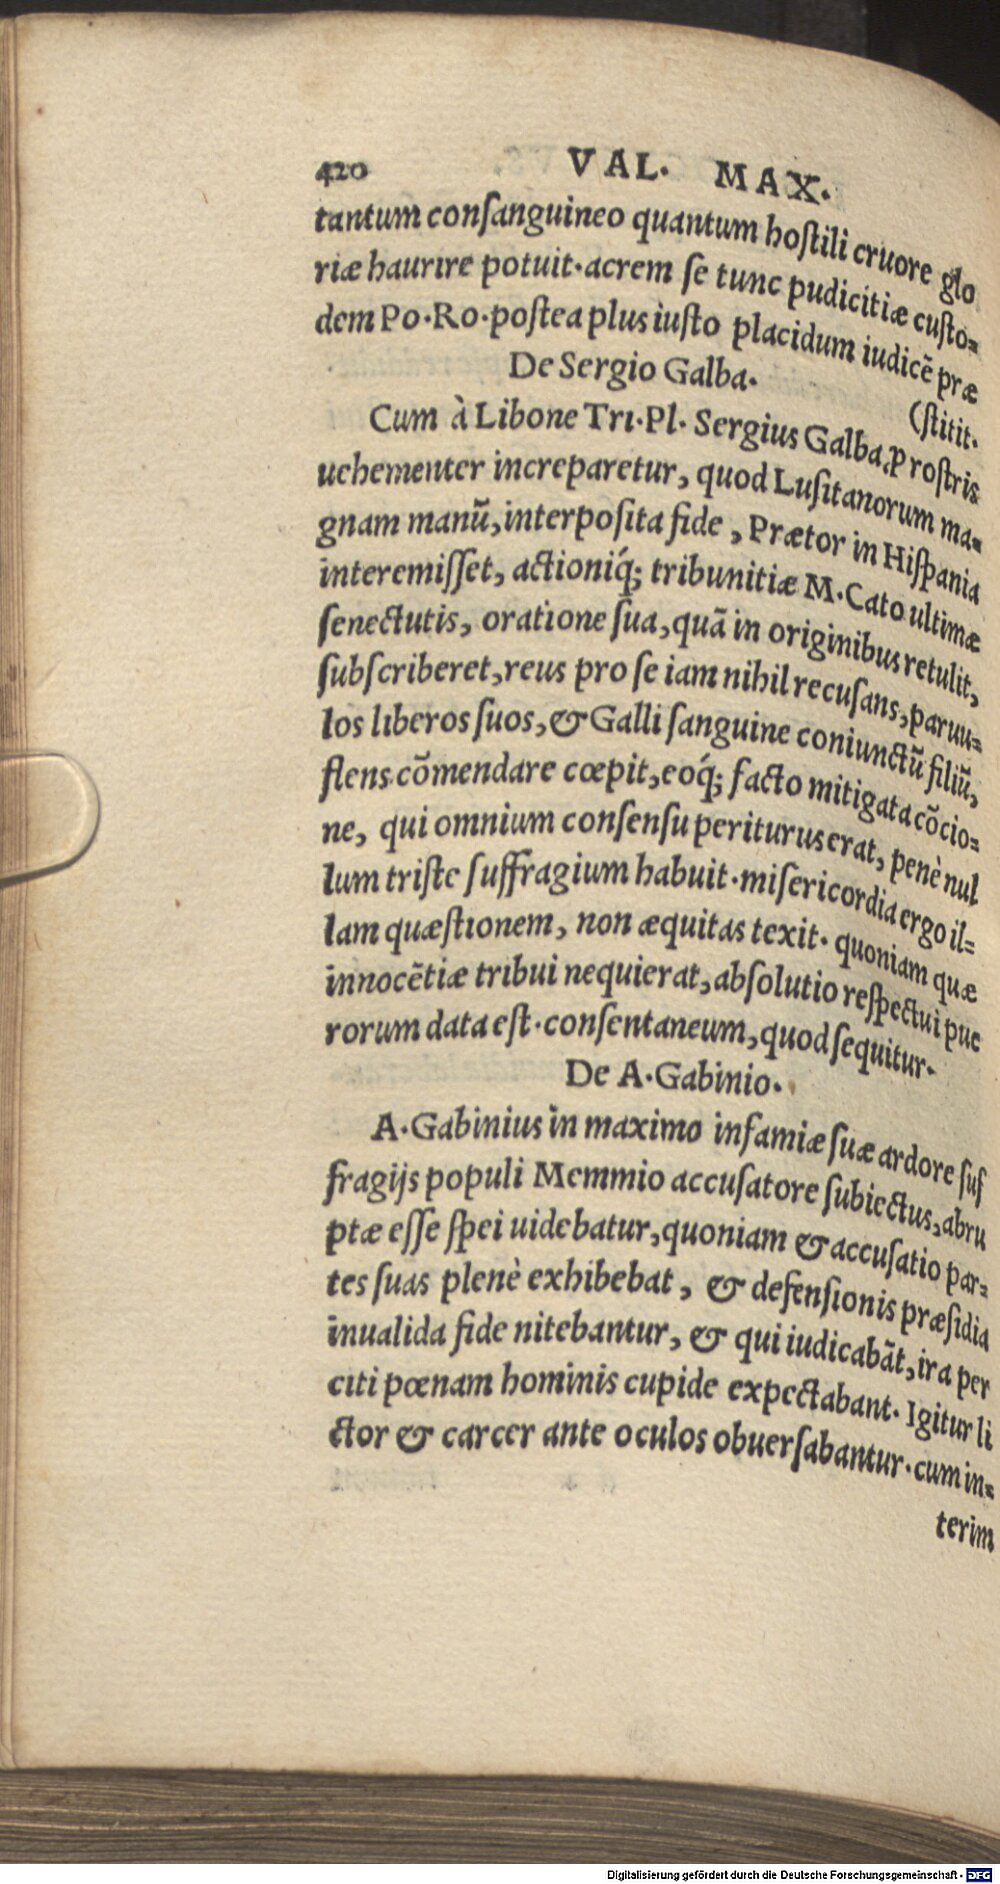 420 VAL. MAX.
tantum consanguineo quantum hostili cruore glo
riæ haurire potuit. acrem se tunc pudicitiæ custo=
dem Po. Ro. postea plus iusto placidum iudicē præ
(stitit.
De Sergio Galba.
Cum à Libone Tri. Pl. Sergius Galba, p rostris
uehementer increparetur, quod Lusitanorum ma=
gnam manū, interposita fide, Prætor in Hispania
interemisset, actioniq́; tribunitiæ M. Cato ultimæ
senectutis, oratione sua, quā in originibus retulit,
subscriberet, reus pro se iam nihil recusans, paruu=
los liberos suos, & Galli sanguine coniunctū filiū,
flens cōmendare cœpit, eoq́; facto mitigata cōcio=
ne, qui omnium consensu periturus erat, penè nul
lum triste suffragium habuit. misericordia ergo il=
lam quæstionem, non æquitas texit. quoniam quæ
innocētiæ tribui nequierat, absolutio respectui pue
rorum data est. consentaneum, quod sequitur.
De A. Gabinio.
A. Gabinius in maximo infamiæ suæ ardore suf
fragijs populi Memmio accusatore subiectus, abru
ptæ esse spei uidebatur, quoniam & accusatio par=
tes suas plenè exhibebat, & defensionis præsidia
inualida fide nitebantur, & qui iudicabāt, ira per
citi pœnam hominis cupide expectabant. Igitur li
ctor & carcer ante oculos obuersabantur. cum in=
terim
Digitalisierung gefördert durch die Deutsche Forschungsgemeinschaft - DFG